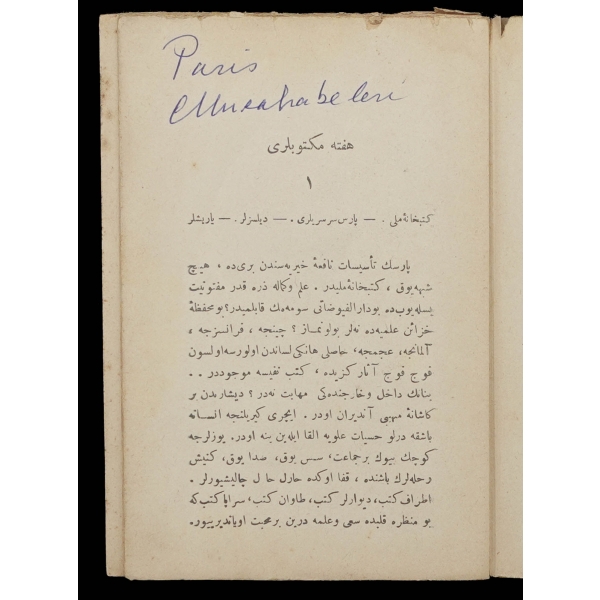 Paris
Musahabeleri
هفته مكتوبلری
١
كتبخانهٔ ملی . — پارس سرسریلری . — دیلسزلر . — یاریشلر
پارسك تأسیسات نافعهٔ خیریه‌سندن بری ده ، هیچ
شبهه یوق ، كتبخانهٔ ملیدر . علم وكماله ذره قدر مفتونیت
بسله‌یوب ده بودار الفیوضاتی سومه‌مك قابلمیدر؟ بو محفظهٔ
خزائن علمیه‌ده نه‌لر بولونماز ؟ چینجه ، فرانسزجه ،
آلمانجه، عجمجه، حاصلی هانكی لساندن اولورسه اولسون
فوج فوج آثار كزیده ، كتب نفیسه موجوددر . .
بنانك داخل وخارجنده‌كی مهابت نه‌در ؟ دیشاریدن بر
كاشانهٔ مهیبی آندیران اودر . ایچری كیریلنجه انسانه
باشقه درلو حسیات علویه القا ایله‌ین ینه اودر. یوزلرجه
كوچك بیوك برجماعت، سس یوق، صدا یوق، كنیش
رحله‌لرك باشنده ، قفا اوكده حارل حارل چالیشیورلر .
اطراف كتب، دیوارلر كتب، طاوان كتب، سراپا كتب كه
بو منظره قلبده سعی وعلمه درین بر محبت اویاندیریور.